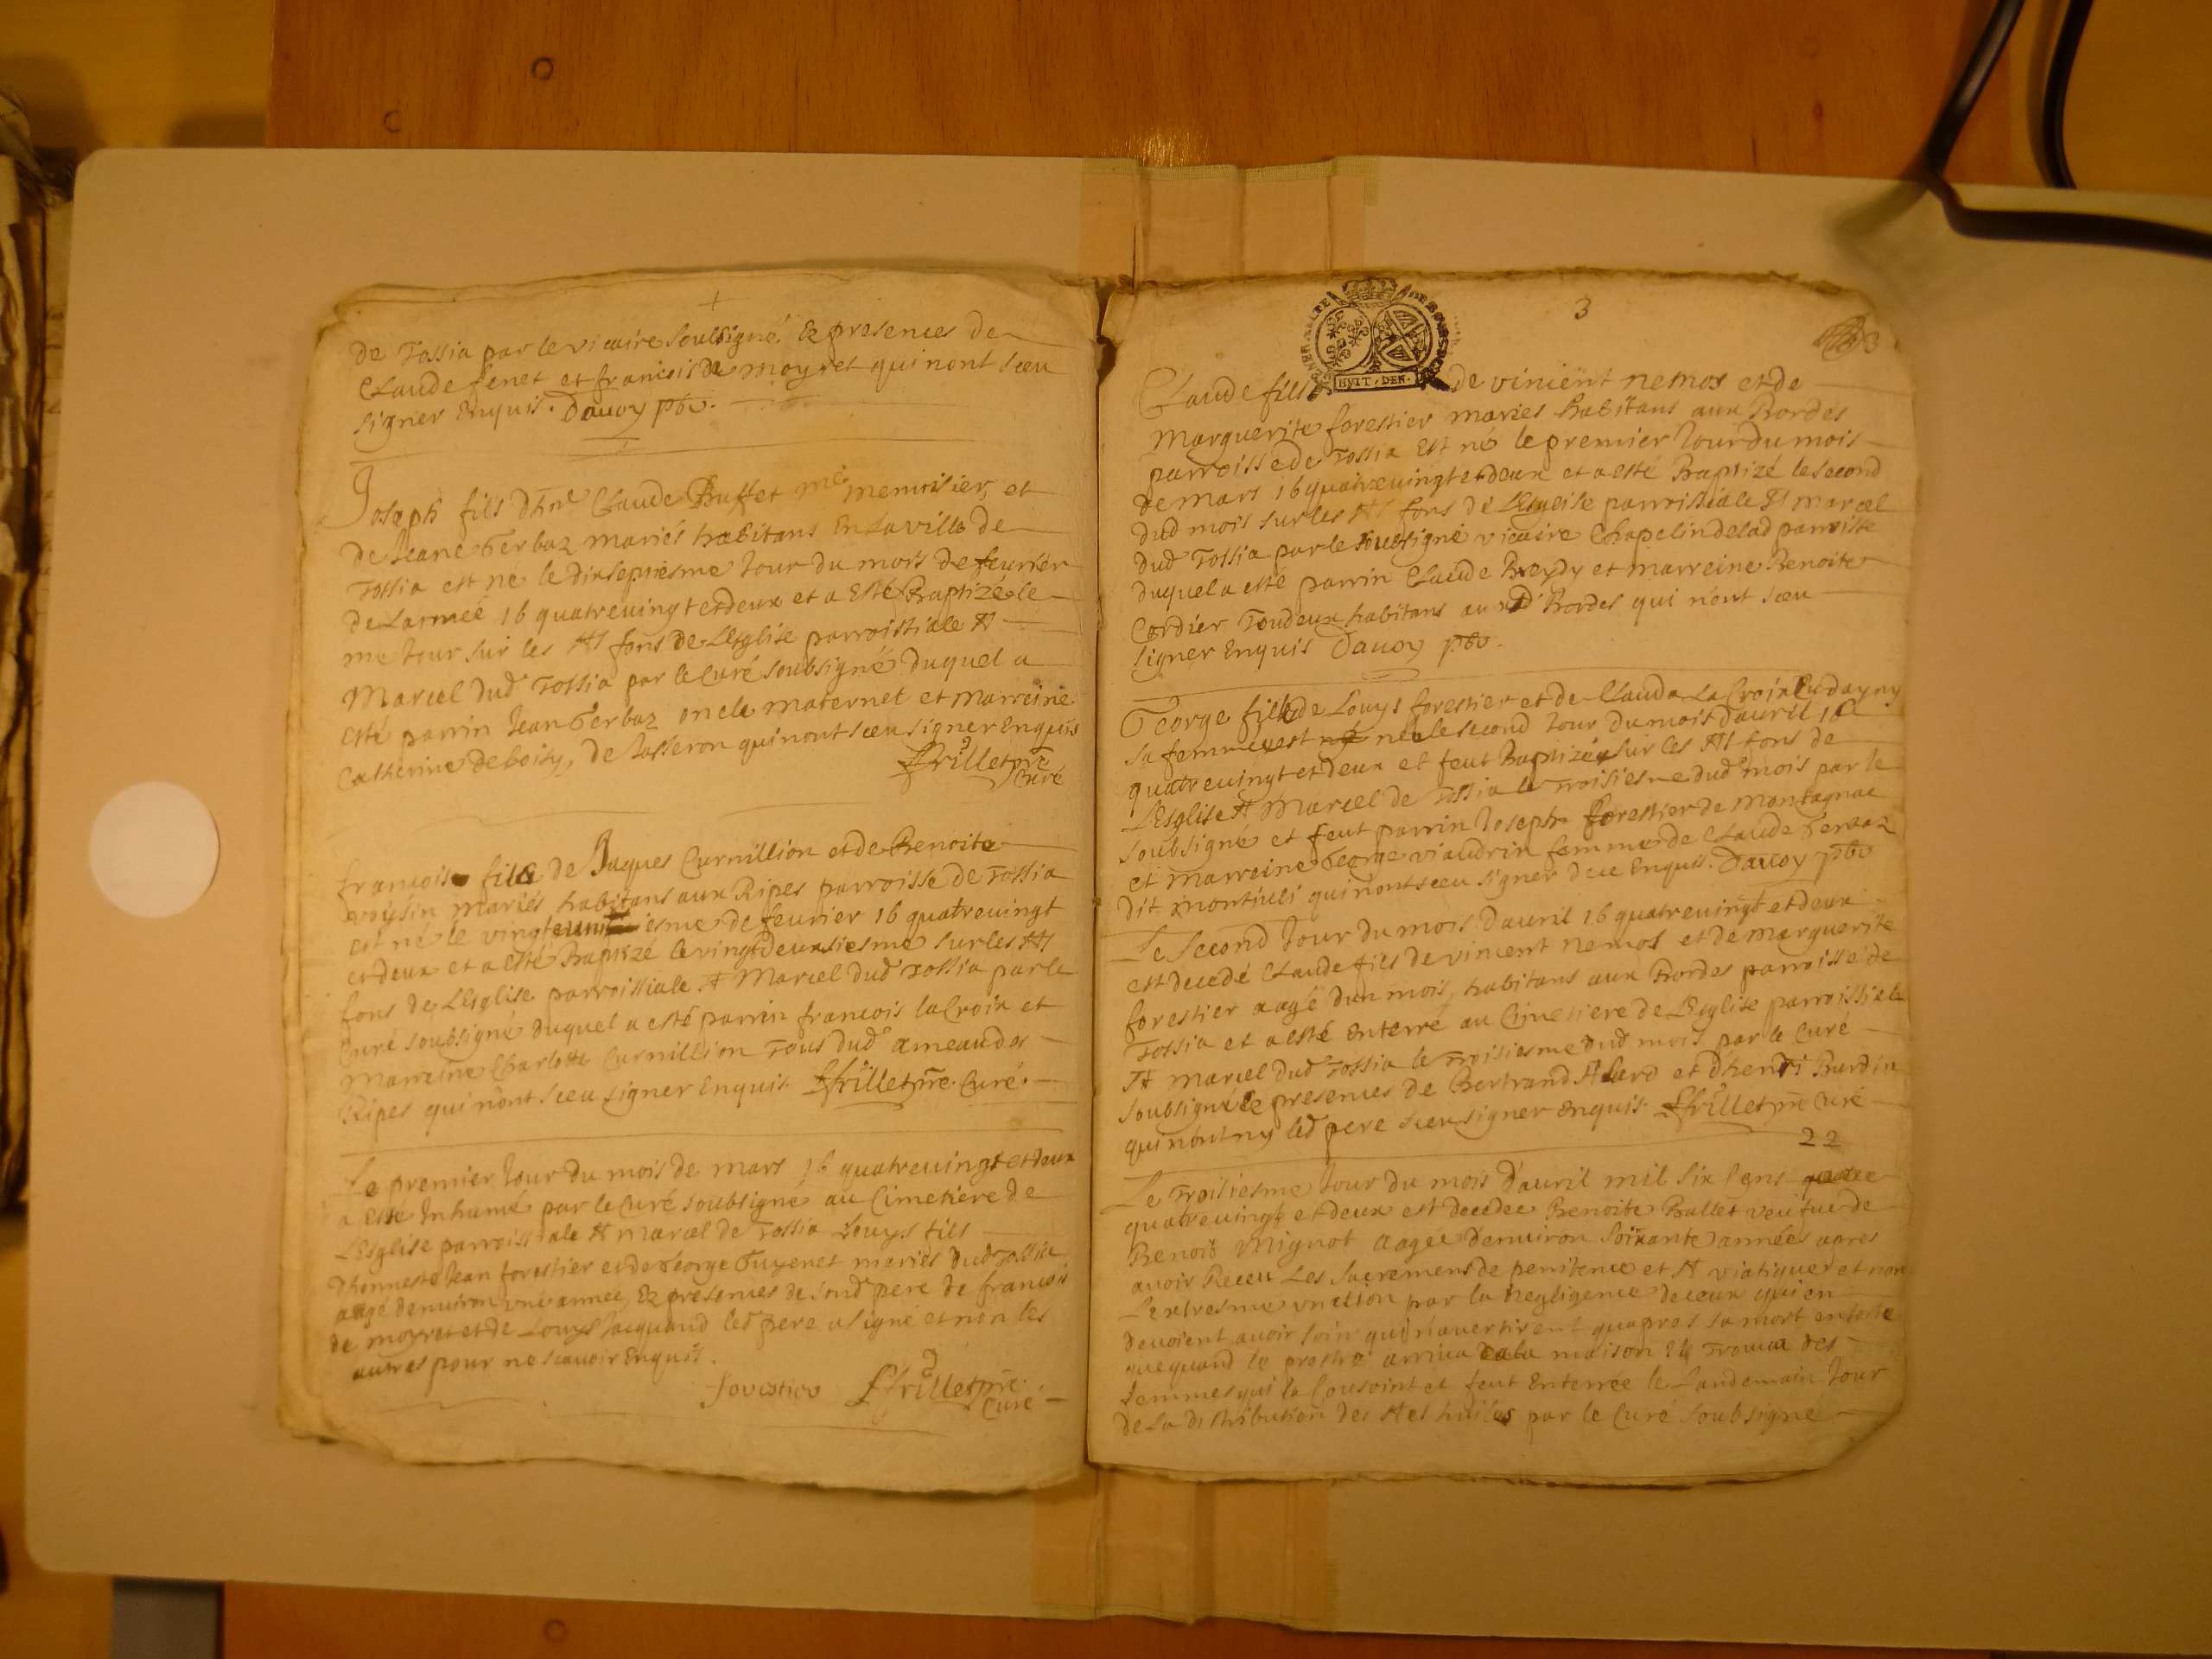 de Tossia par le vicaire soubsigné. Ez presences de
Claude fenet et francois de moyret qui nont sceu
signer Enquis. Dauoy pbr.
Joseph fils dhnē Claude Buffet me menuisier, et
de Jeane Gerbaz mariés habitans En la ville de
Tossia est né le dixseptiesme Jour du mois de feurier
de Lannee 16 quatreuingt et deux et a Esté Baptizé le
me Jour sur les Sts fons de LEsglise parroissiale St
Marcel dud Tossia par le Curé soubsigné duquel a
esté parrin Jean Gerbaz oncle maternel et marreine
Catherine de boisy, de Jasseron qui nont sceu signer Enquis
ffrillet pre
Curé
francois fils de Jaques Curnillion et de Benoite
voysin mariés habitans aux Ripes parroisse de Tossia
est né le vingt iesme de feurier 16 quatreuingt
et deux et a esté Baptizé le vingtdeuxsiesme sur les Sts
fons de LEsglise parroissiale St Marcel dud Tossia par le
Curé soubsigné duquel a esté parrin francois la Croix et
Marreine Charlotte Curnillion Tous dud ameau des
Ripes qui nont sceu signer Enquis. ffrillet pre Curé.
Le premier Jour du mois de mars 16 quatreuingt et deux
a Esté Inhumé par le Curé soubsigné au Cimetiere de
LEsglise parroissiale St marcel de Tossia Louys fils
dhonneste Jean forestier et de George Guyenet mariés dud Tossia
aagé denuiron une annee, Ez presences de sond pere de francois
de moyret et de Louys Jacquand led pere a signé et non les
autres pour ne scauoir Enquis.
forestier ffrillet pre
Curé
3
3
GENERALITE DE
HVIT . DEN .
Claude fils de vincent nemos et de
Marguerite forestier mariés habitans aux Bordes
parroisse de Tossia Est né le premier Jour du mois
de mars 16 quatreuingt et deux et a esté Baptizé le second
dud mois sur les Sts fons de LEsglise parroissiale St marcel
dud Tossia par le soubsigné vicaire Chapelin de lad parroisse
duquel a esté parrin Claude Breydy et marreine Benoite
Cordier Toudeux habitans au d Bordes qui n'ont sceu
signer Enquis Dauoy pbr.
George fille de Louys forestier et de Clauda La Croix
sa femme est née le second Jour du mois dauril 16
quatreuingt et deux et feut Baptizée sur les Sts fons de
LEsglise St Marcel de Tossia le Troisiesme dud mois par le
soubsigné et feut parrin Joseph forestier de montagnac
et marreine George viaudrin femme de Claude Gerbaz
dit montiuli qui nont sceu signer de ce Enquis. Dauoy pbr
Le second Jour du mois dauril 16 quatreuingt et deux
est decedé Claude fils de vincent nemos et de marguerite
forestier aagé dun mois, habitans aux Bordes parroisse de
Tossia et a esté Enterré au Cimetiere de LEsglise parroissiale
St marcel dud Tossia le Troisiesme dud mois par le Curé
soubsigné Ez presences de Bertrand Alard et d'henri Burdin
qui nont ny led pere sceu signer Enquis. ffrillet pre Curé
22
Le Troisiesme Jour du mois d'auril mil six Cens
quatreuingt et deux est decedee Benoite Ballet veufue de
Benoit Mignot aagee denuiron soixante années apres
auoir Receu Les sacremens de penitence et St viatique et non
Lextresme unction par la negligence de ceux qui en
deuoient auoir soin qui n'auertirent quapres sa mort en sorte
que quand le prestre arriua maison Il Trouua des
femmes qui la Cousoint et feut Enterrée le Landemain Jour
de la distribution des Stes huiles par le Curé soubsigné